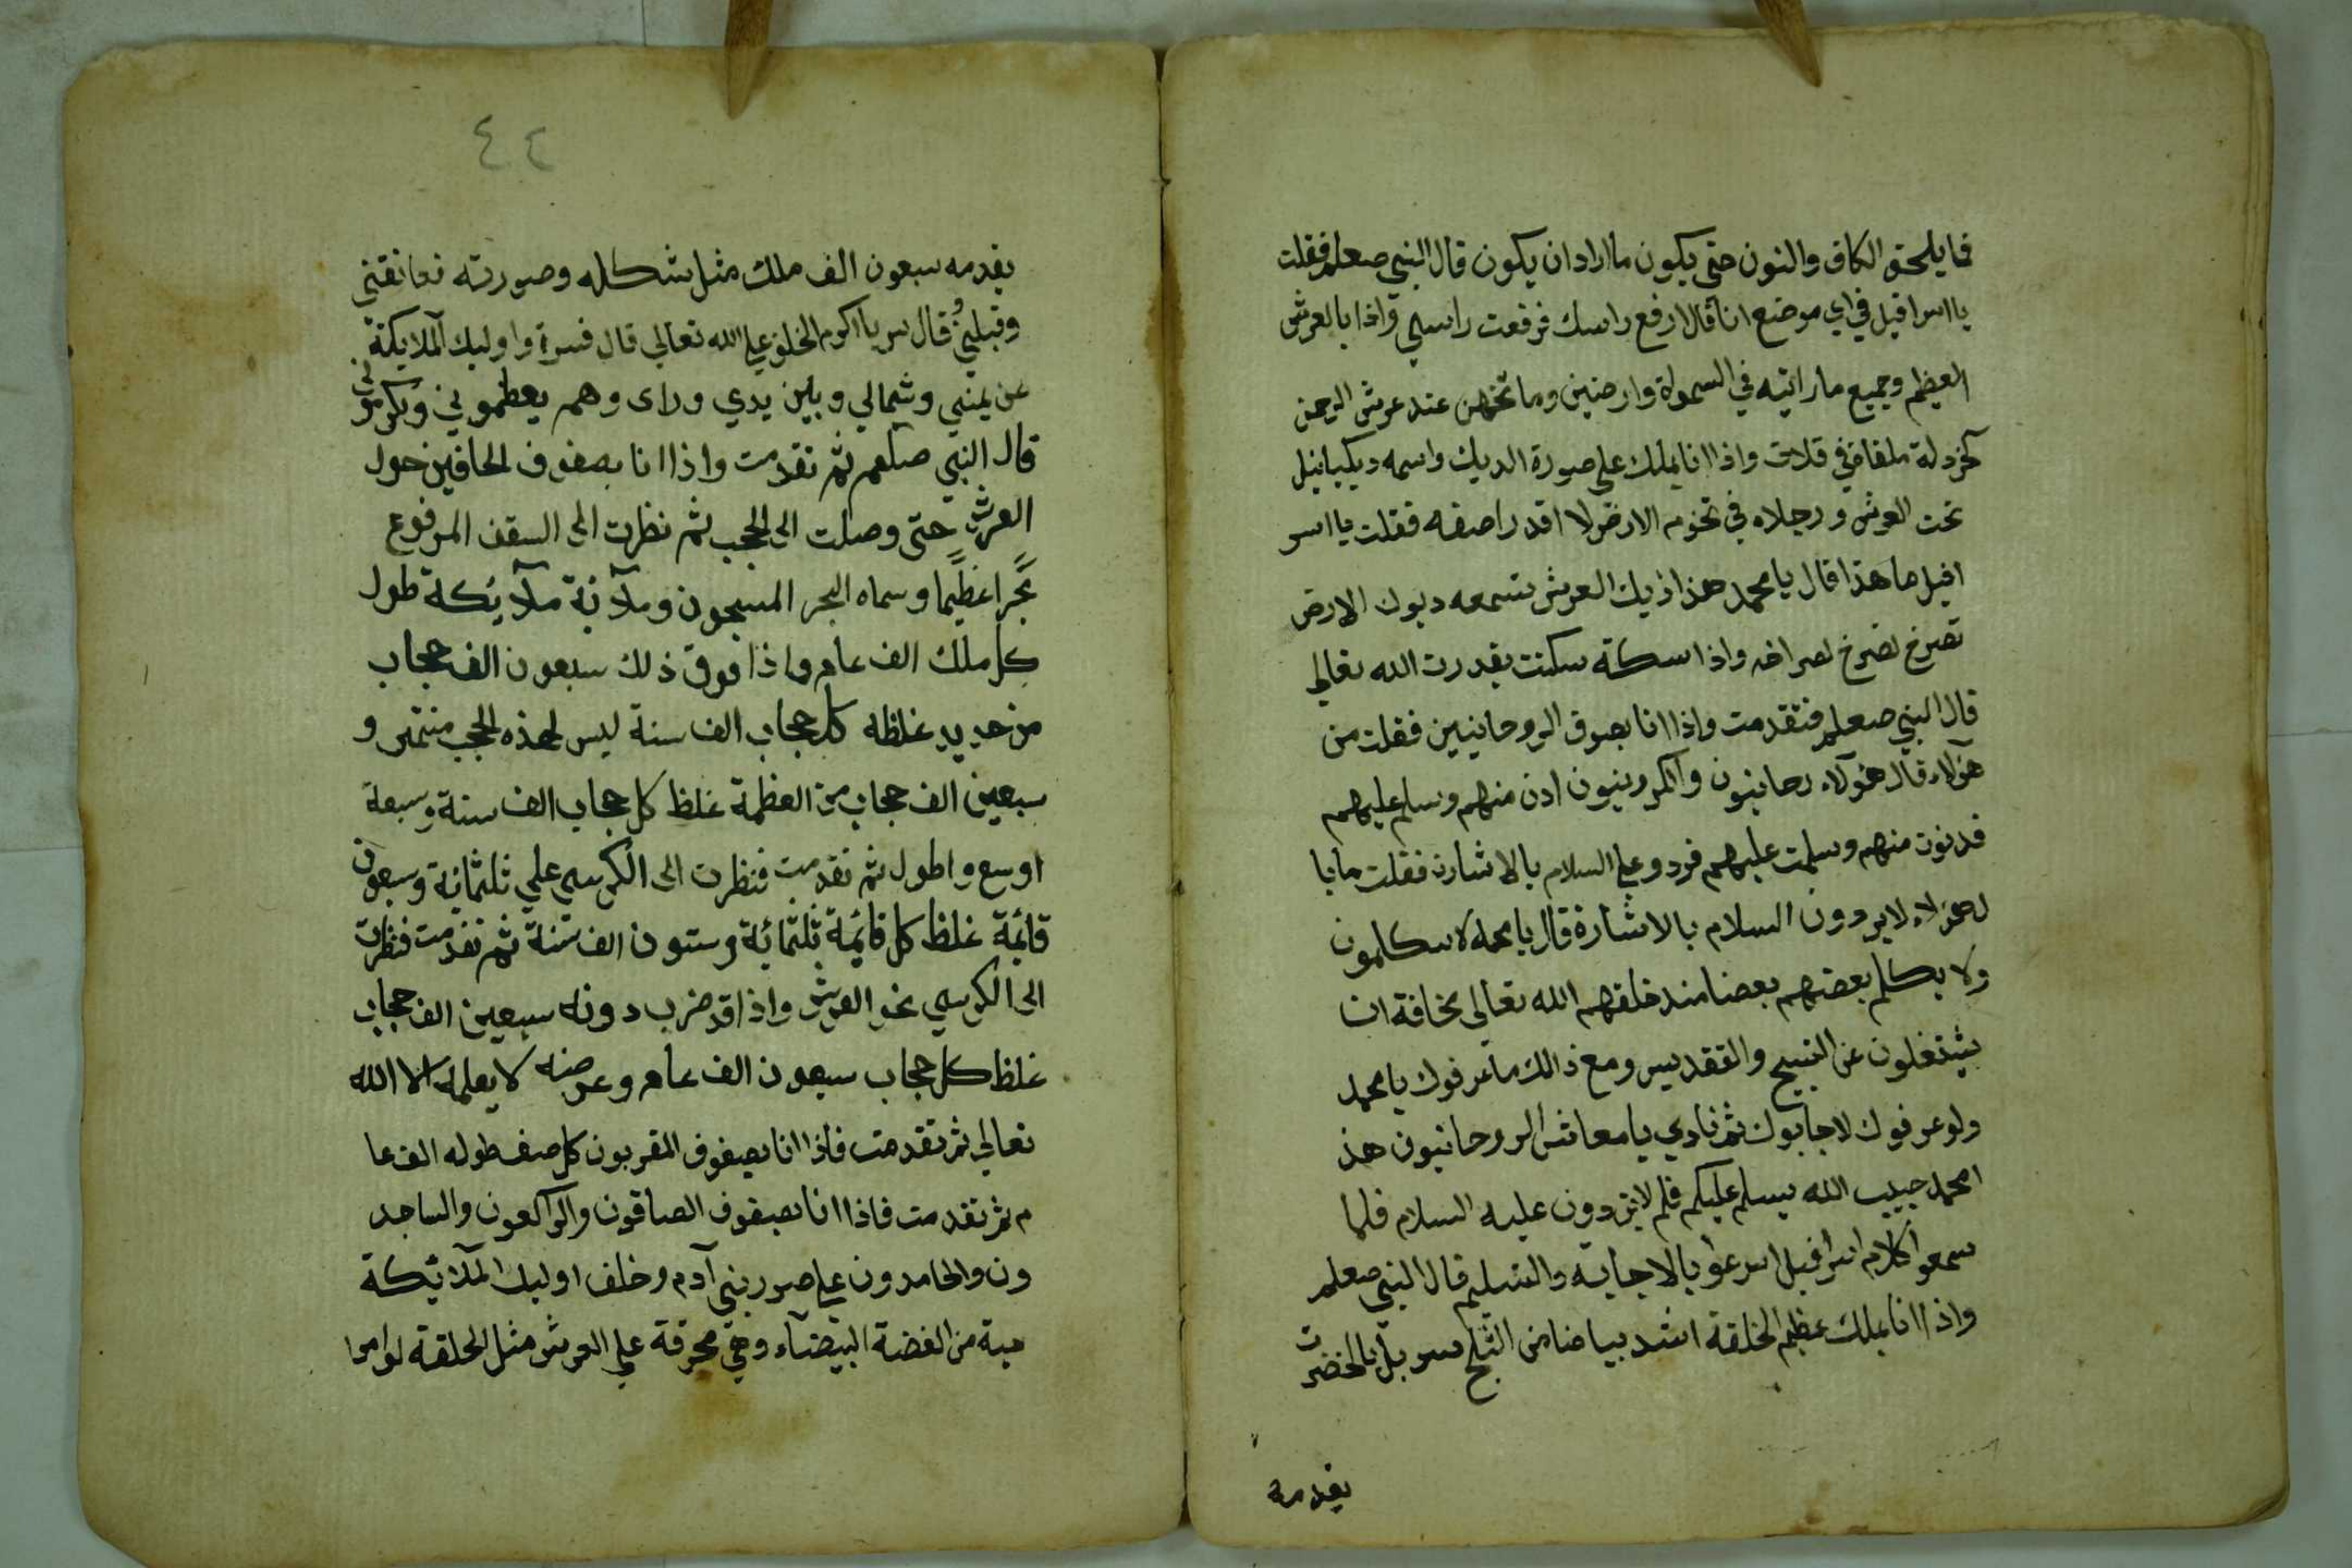 فما يلحق الكاف والنون حتى يكون ما اراد ان يكون قال النبي صعلم فقلت
يا اسرافيل في اي موضع انا قال ارفع راسك فرفعت راسي واذا بالعرش
العظيم وجميع ما رايته في السموات وارضين وما تحتهن عند عرش الرحمن
كخردلة ملقاة في فلاة واذا انا بملك على صورة الديك واسمه ديكيائيل
تحت العرش ورجلاه في تخوم الارض لا اقدر اصفه فقلت يا اسر
افيل ما هذا قال يا محمد هذا ذيك العرش تسمعه ديوك الارض
تصرخ تصرخ لصراخه واذا سكته سكنت بقدرت الله تعالي
قال النبي صعلم فتقدمت واذا انا بصوف الروحانيين فقلت من
هؤلاء قال هؤلاء رحانيون والكروبيون ادن منهم وسلم عليهم
فدنوت منهم وسلمت عليهم فردو علي السلام بالاشارة فقلت ما با
ل هؤلاء لا يردون السلام بالاشارة قال يا محمد لا يتكلمون
ولا يكلم بعضهم بعضا مند خلقهم الله تعالى مخافة ان
يشتغلون عن التسبيح والتقديس ومع ذالك ما عرفوك يا محمد
ولو عرفوك لاجابوك ثم نادي يا معاشر الروحانيون هذ
ا محمد حبيب الله يسلم عليكم فلم لا تردون عليه السلام فلما
سمعوا كلام اسرافيل اسرعوا بالاجابة والتسليم قال النبي صعلم
واذا انا بملك عظيم الخلقة اشد بياضا من الثلج مسربل بالخضرت
يقدمه
٤٢
يقدمه سبعون الف ملك مثل شكله وصورته فعانقني
وقبلني وقال سر يا اكرم الخلق علي الله تعالي قال فسرت واوليك الملايكة
عن يميني وشمالي وبين يدي وراى وهم يعظموني ويكرموني
قال النبي صلعم ثم تقدمت واذا انا بصفوف الحافين حول
العرش حتى وصلت الى الحجب ثم نظرت الى السقف المرفوع
بحرا عظيما وسماه البحر المسجون وملآنة ملآئكة طول
كل ملك الف عام واذا فوق ذلك سبعون الف حجاب
من حديد غلظه كل حجاب الف سنة ليس لهذه الحجب منتهى و
سبعين الف حجاب من العظمة غلظ كل حجاب الف سنة وسبعة
اوسع واطول ثم تقدمت فنظرت الى الكرسي علي ثلثمائة وسبعون
قائمة غلظ كل قائمة ثلثمائة وستون الف سنة ثم تقدمت فنظرت
الى الكرسي نحو العرش واذا قد ضرب دونه سبعين الف حجاب
غلظ كل حجاب سبعون الف عام وعرضه لا يعلمه الا الله
تعالي ثم تقدمت فاذا انا بصفوف المقربون كل صف طوله الف عا
م ثم تقدمت فاذا انا بصفوف الصافون والراكعون والساجد
ون والحامدون علي صور بني آدم وخلف اوليك الملآئكة
حية من الفضة البيضآء وهي محرقة علي العرش مثل الحلقة لو امرا